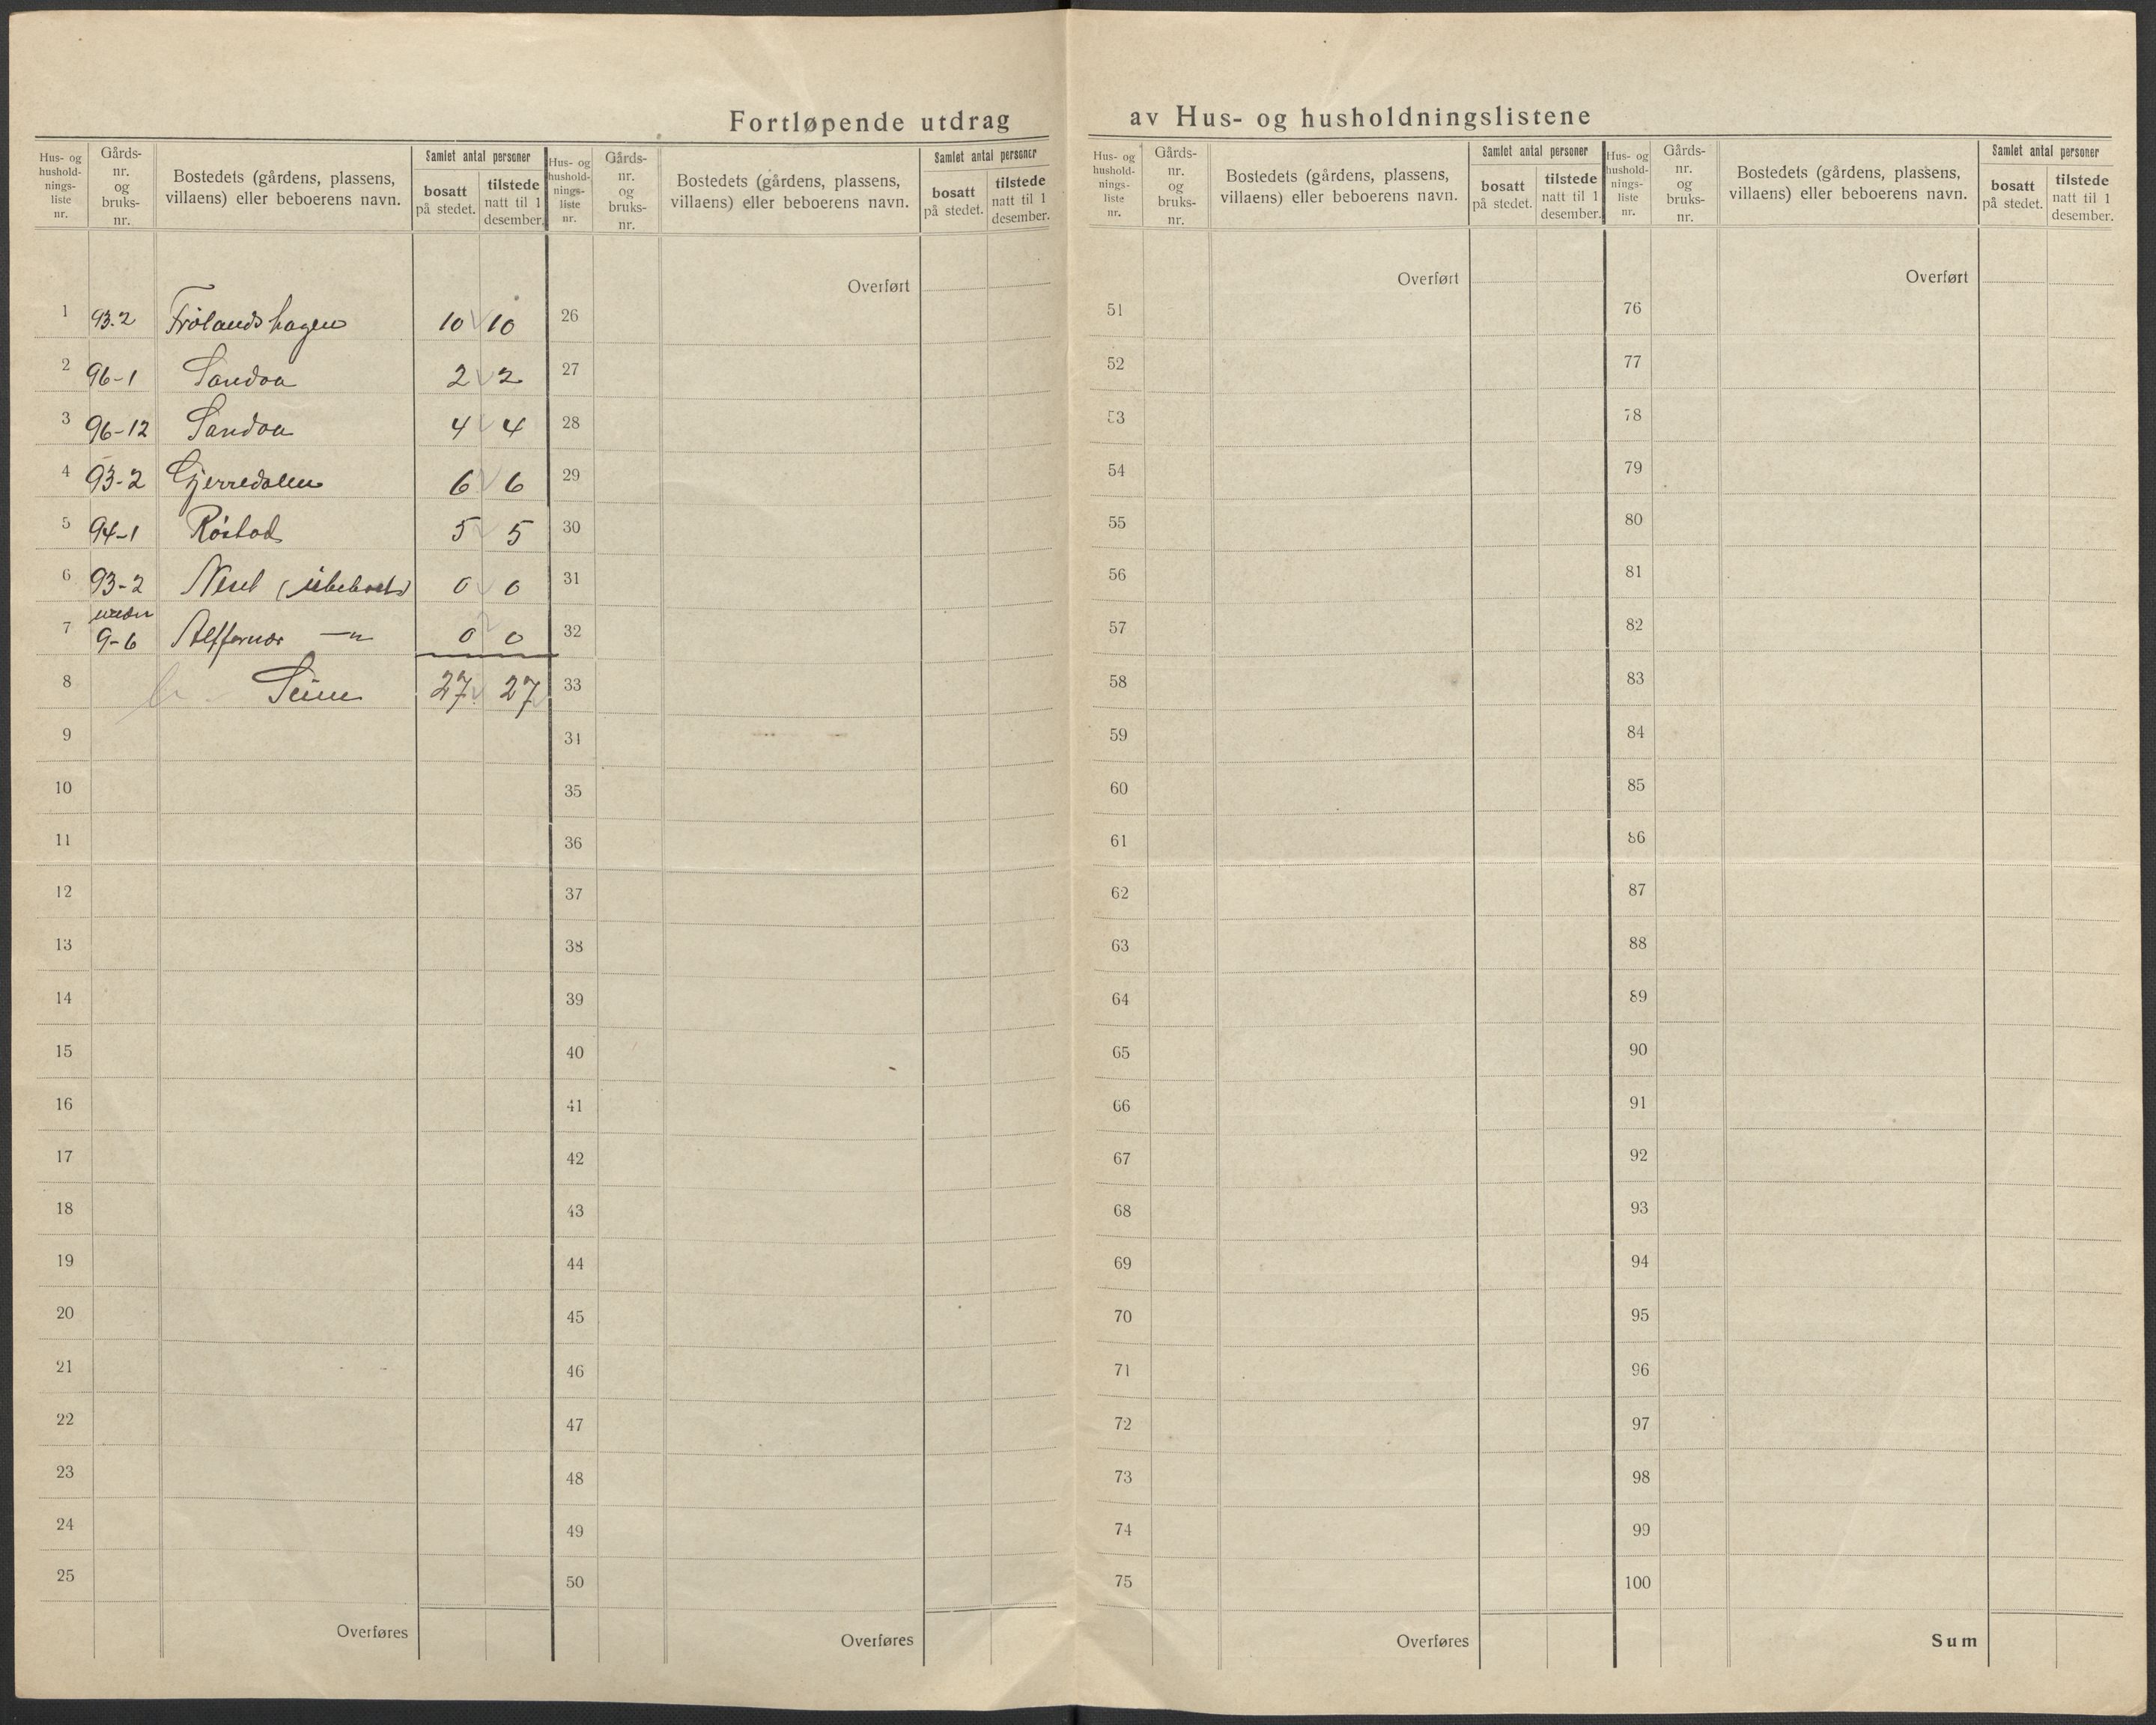 Fortløpende utdrag av Hus- og husholdningslistene
Hus- og hushold-nings-liste nr. Gårds-nr. og bruks-nr. Bostedets (gårdens, plassens, villaens) eller beboerens navn. Samlet antal personer bosatt på stedet. tilstede natt til 1 desember.
Hus- og hushold-nings-liste nr. Gårds-nr. og bruks-nr. Bostedets (gårdens, plassens, villaens) eller beboerens navn. Samlet antal personer bosatt på stedet. tilstede natt til 1 desember.
Hus- og hushold-nings-liste nr. Gårds-nr. og bruks-nr. Bostedets (gårdens, plassens, villaens) eller beboerens navn. Samlet antal personer bosatt på stedet. tilstede natt til 1 desember.
Hus- og hushold-nings-liste nr. Gårds-nr. og bruks-nr. Bostedets (gårdens, plassens, villaens) eller beboerens navn. Samlet antal personer bosatt på stedet. tilstede natt til 1 desember.
1 93.2 Frølandshagen 10 10
2 96-1 Sandoa 2 2
3 96-12 Sandoa 4 4
4 93-2 Gjerredalen 6 6
5 94-1 Röstad 5 5
6 93-2 Neset (ubeboet) 0 0
7 under 9-6 0 0
8 Sum 27 27
9
10
11
12
13
14
15
16
17
18
19
20
21
22
23
24
25
Overføres
Overført
26
27
28
29
30
31
32
33
34
35
36
37
38
39
40
41
42
43
44
45
46
47
48
49
50
Overføres
Overført
51
52
53
54
55
56
57
58
59
60
61
62
63
64
65
66
67
68
69
70
71
72
73
74
75
Overføres
Overført
76
77
78
79
80
81
82
83
84
85
86
87
88
89
90
91
92
93
94
95
96
97
98
99
100
Sum